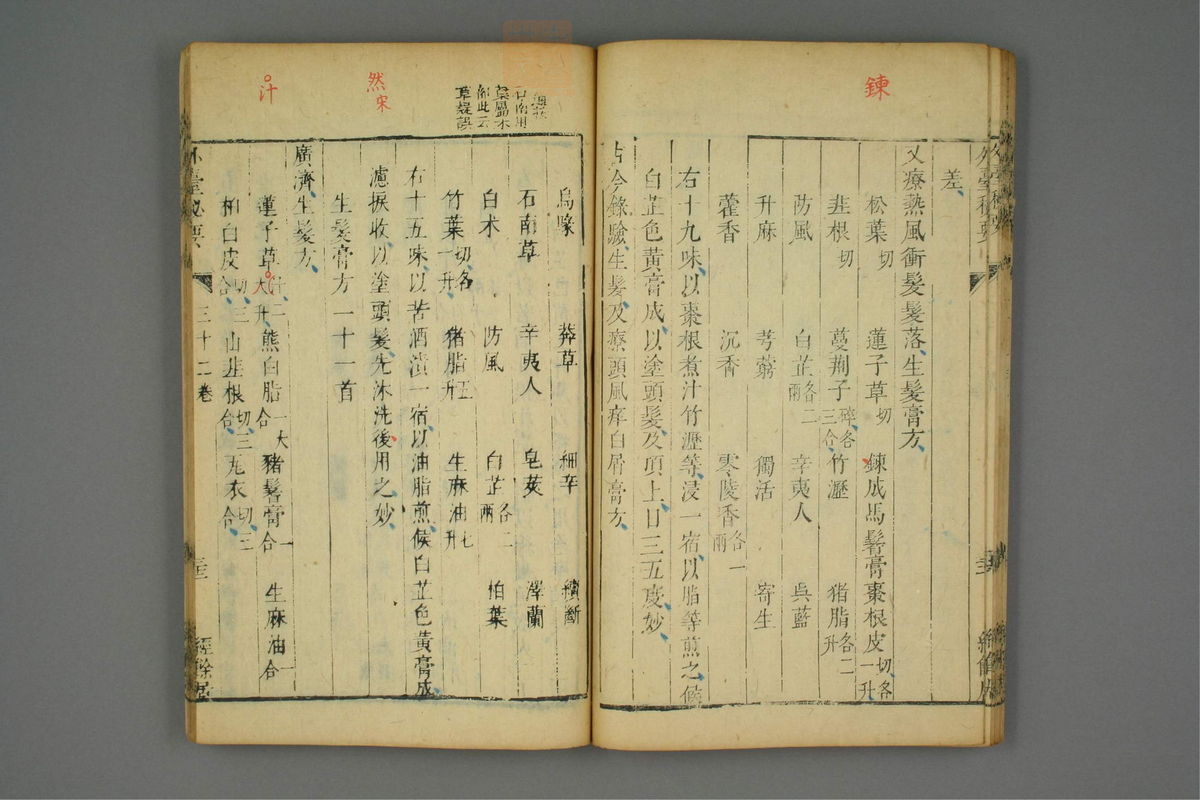 鍊
差
又療熱風衝髮髮落生髮膏方
松葉切 蓮子草切 鍊成馬鬐膏棗根皮切各一升
韭根切 蔓荆子碎各三合 竹瀝 猪脂各二升
防風 白芷各二兩 辛夷人 吳藍
升麻 芎藭 獨活 寄生
藿香 沉香 零陵香各一兩
右十九味以棗根煮汁竹瀝等浸一宿以脂等煎之候
白芷色黃膏成以塗頭髮及頂上日三五度妙
古今錄驗生髮及療頭風痒白屑膏方
烏喙 莽草 細辛 續斷
石南草 辛夷人 皂莢 澤蘭
白术 防風 白芷各二兩 柏葉
竹葉切各一升 猪脂五升 生麻油七升
右十五味以苦酒漬一宿以油脂煎候白芷色黃膏成
濾捩收以塗頭髮先沐洗後用之妙
生髮膏方一十一首
廣濟生髮方
蓮子草汁二大升 熊白脂一大合 猪鬐膏一合 生麻油一合
柏白皮切三合 山韭根切三合 瓦衣切三合
外臺秘要 三十二卷 經餘居
然宋
汁